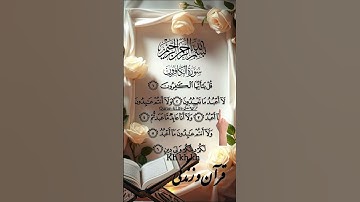 بسم الله الرحمن الرحيم
سورة الكافرون
قُلْ يَا أَيُّهَا الْكَافِرُونَ ١
لَا أَعْبُدُ مَا تَعْبُدُونَ ٢ وَلَا أَنتُمْ عَابِدُونَ
مَا أَعْبُدُ ٣ وَلَا أَنَا عَابِدٌ مَّا عَبَدتُّمْ ٤
وَلَا أَنتُمْ عَابِدُونَ مَا أَعْبُدُ ٥
لَكُمْ دِينُكُمْ وَلِيَ دِينِ ٦
Kh kh kh
قرآن و زندگی